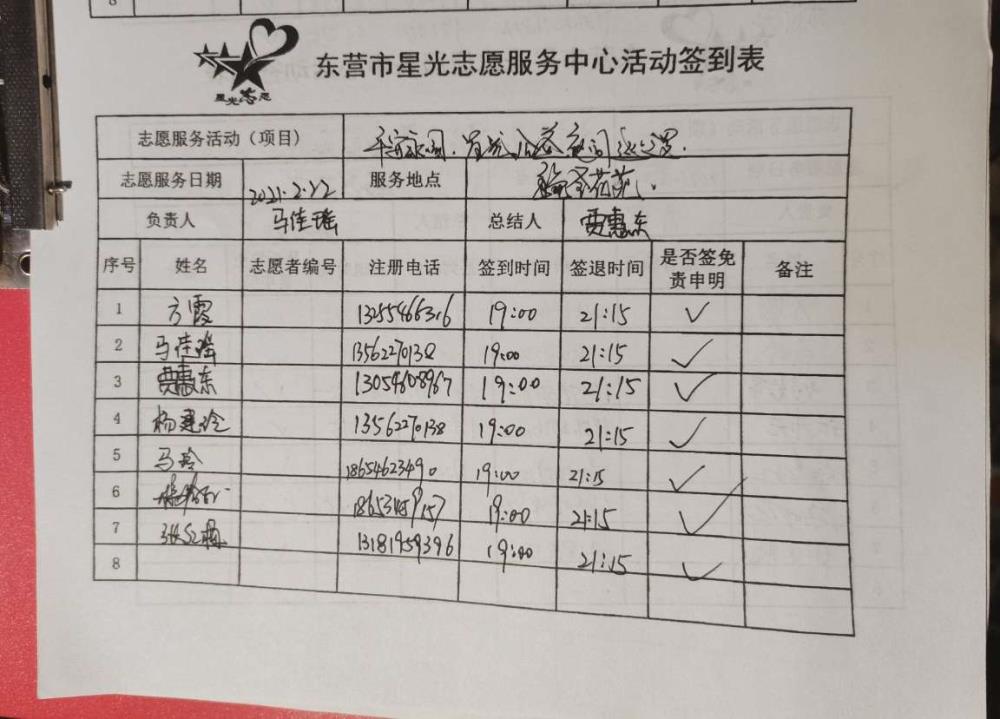 8
星光志愿
东营市星光志愿服务中心活动签到表
志愿服务活动（项目） 平安家园.
志愿服务日期 2021.2.22 服务地点
负责人 马佳瑶 总结人 贾惠东
序号 姓名 志愿者编号 注册电话 签到时间 签退时间 是否签免责申明 备注
1 方霞 13255466316 19:00 21:15 ✓
2 马佳瑶 13562270138 19:00 21:15 ✓
3 贾惠东 13054608967 19:00 21:15 ✓
4 杨建玲 13562270138 19:00 21:15 ✓
5 马玲 18654623490 19:00 21:15 ✓
6 19:00 21:15 ✓
7 13181959396 19:00 21:15 ✓
8